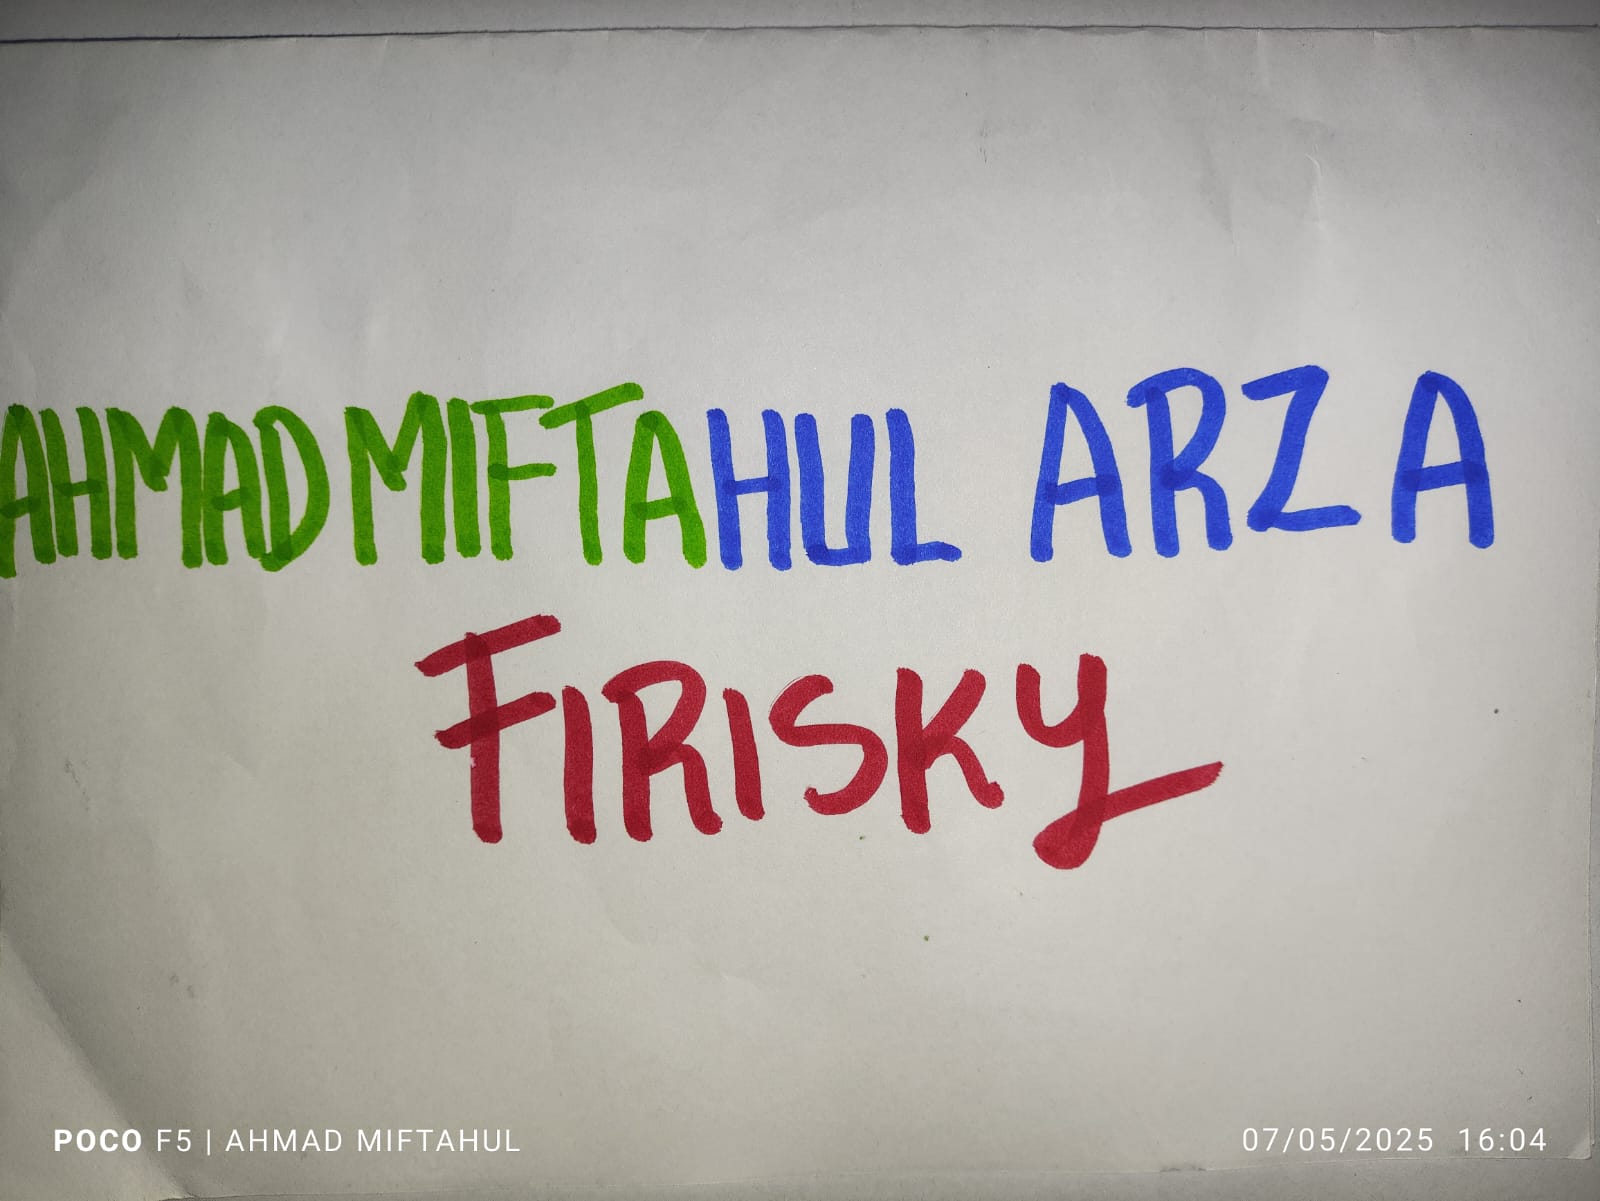 AHMAD MIFTAHUL ARZA
FIRISKY
POCO F5 | AHMAD MIFTAHUL
07/05/2025 16:04